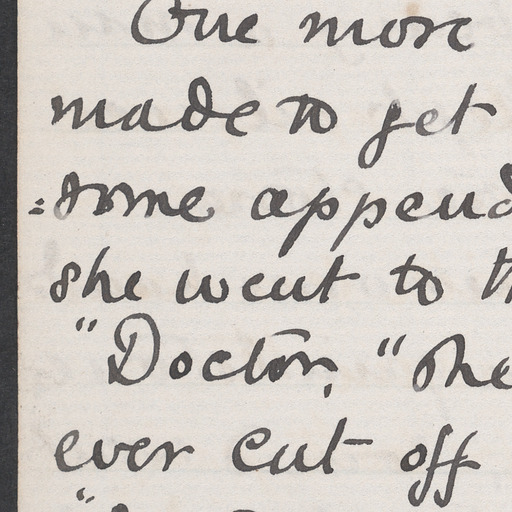 One more
made to get
=some append
she went to th
"Doctor, "she
ever cut off
"